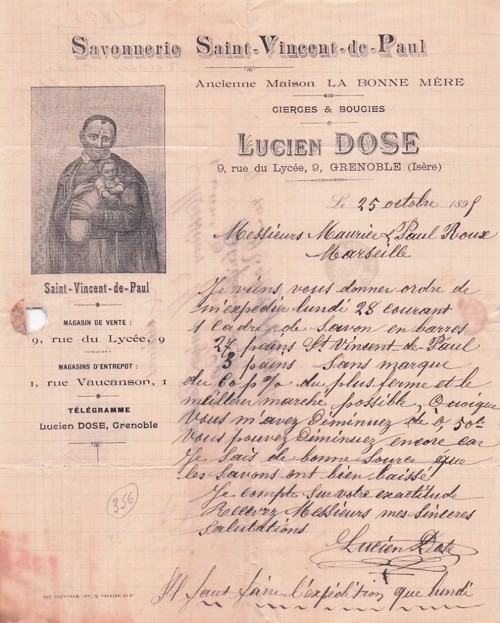 Savonnerie Saint-Vincent-de-Paul
Ancienne Maison LA BONNE MÈRE
CIERGES & BOUGIES
LUCIEN DOSE
9, rue du Lycée, 9, GRENOBLE (Isère)
Le 25 octobre 1895
Messieurs Maurice & Paul Roux
Marseille
Saint-Vincent-de-Paul
MAGASIN DE VENTE :
9, rue du Lycée, 9
MAGASINS D'ENTREPOT :
1, rue Vaucanson, 1
TÉLÉGRAMME
Lucien DOSE, Grenoble
Je viens vous donner ordre de
m'expédier lundi 28 courant
1 cadre de savon en barres
27 pains St Vincent de Paul
3 pains sans marque
du 60 p% du plus ferme et le
meilleur marché possible, Quoique
Vous m'avez Diminuez de 0,50c
Vous pouvez Diminuez encore car
Je Sais de bonne Source que
les Savons ont bien baissé
Je compte Sur votre exactitude
Recevez Messieurs mes Sincères
Salutations
Lucien Dose
35€
Il faut faire l'expédition que lundi